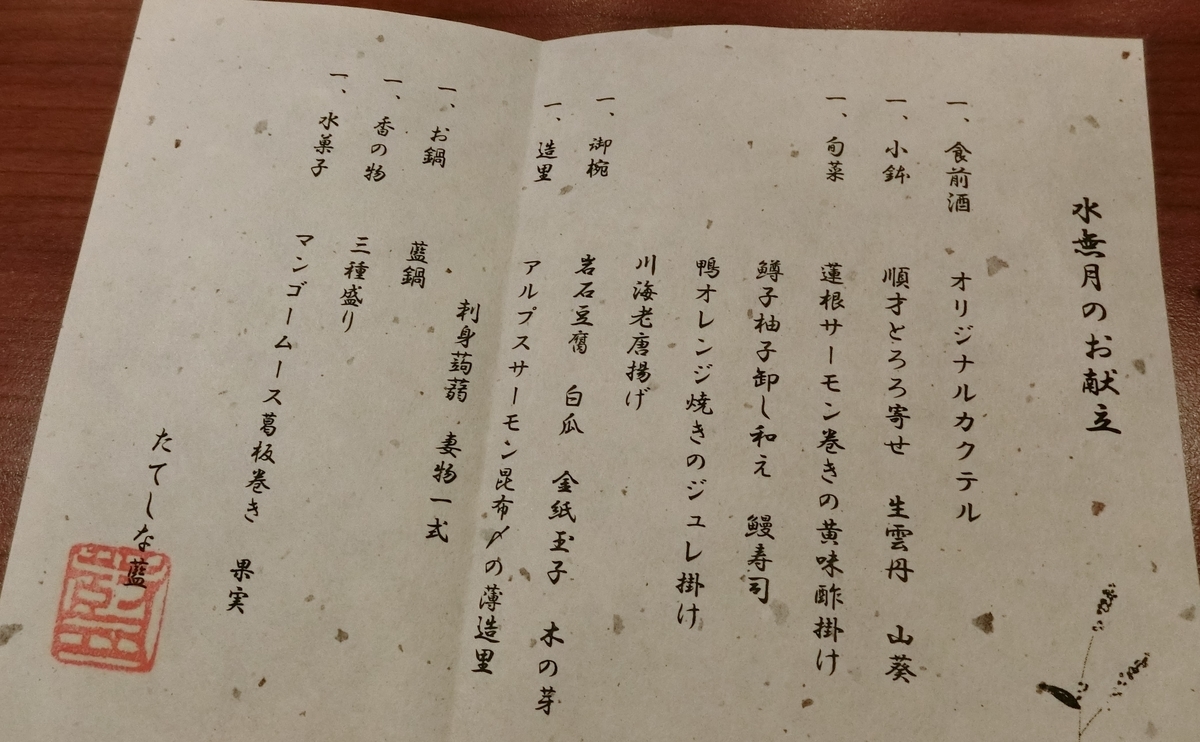 水無月のお献立
一、食前酒　オリジナルカクテル
一、小鉢　順才とろろ寄せ　生雲丹　山葵
一、旬菜　蓮根サーモン巻きの黄味酢掛け
鱒子柚子卸し和え　鰻寿司
鴨オレンジ焼きのジュレ掛け
川海老唐揚げ
一、御椀　岩石豆腐　白瓜　金紙玉子　木の芽
一、造里　アルプスサーモン昆布〆の薄造里
刺身蒟蒻　妻物一式
一、お鍋　藍鍋
一、香の物　三種盛り
一、水菓子　マンゴームース葛板巻き　果実
たてしな藍